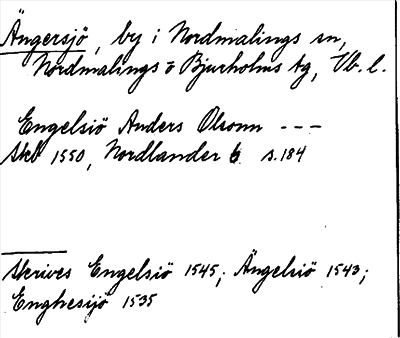 Ängersjö, by i Nordmalings sn,
Nordmalings o Bjurholms tg, Vb. l.
Engelsiö Anders Olsonn ---
Skb 1550, Nordlander 6 s. 184
Skrives Engelsiö 1545; Ängelsiö 1543;
Enghesijö 1535